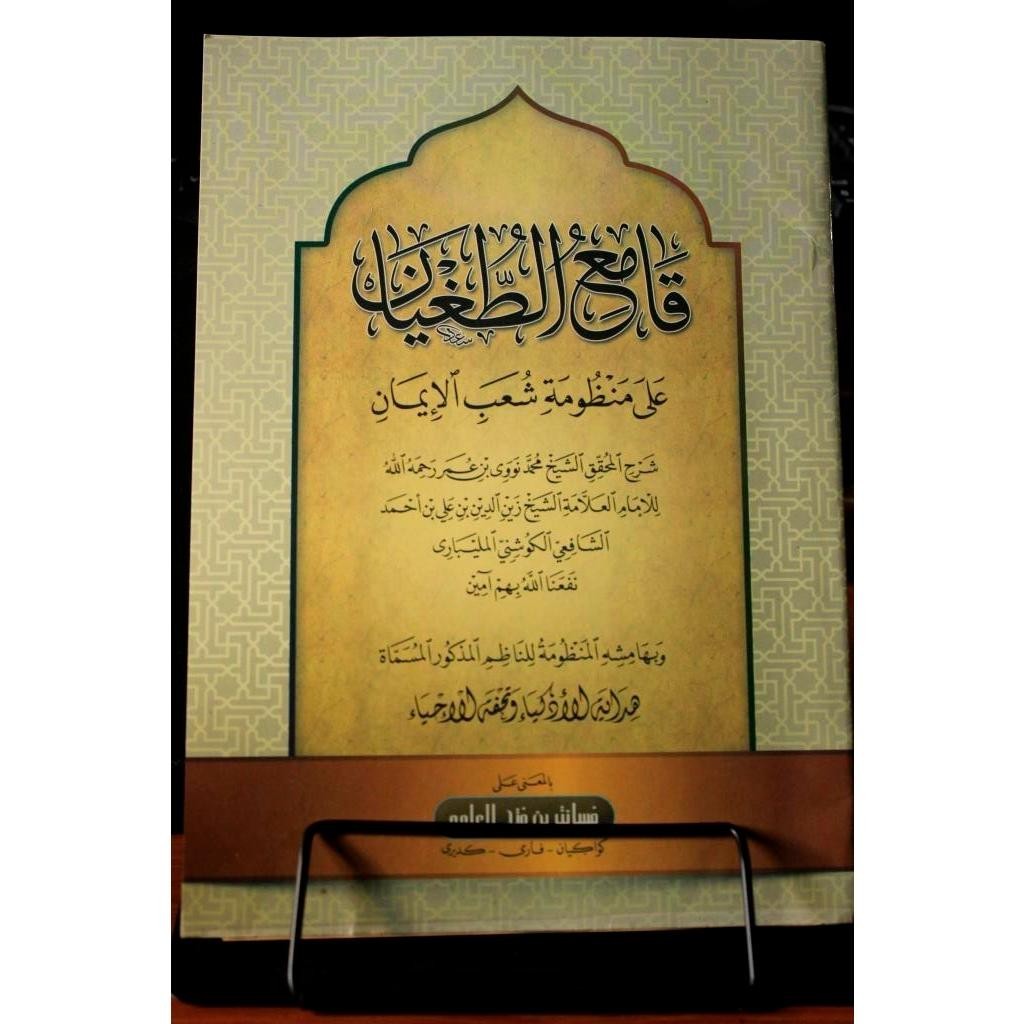 قَامِعُ الطُّغْيَانِ
عَلَى مَنْظُومَةِ شُعَبِ الْإِيمَانِ
شَرْحِ الْمُحَقِّقِ الشَّيْخِ مُحَمَّد نَوَوِي بْنِ عُمَر رَحِمَهُ اللهُ
لِلْإِمَامِ الْعَلَّامَةِ الشَّيْخِ زَيْنِ الدِّينِ بْنِ عَلِي بْنِ أَحْمَد
الشَّافِعِيِّ الْكُوشَنِيِّ الْمَلَيْبَارِى
نَفَعَنَا اللَّهُ بِهِمْ آمِيْن
وَبِهَامِشِهِ الْمَنْظُومَةُ لِلنَّاظِمِ الْمَذْكُورِ الْمُسَمَّاة
هِدَايَة الْأَذْكِيَاء وَتُحْفَة الْإِحْيَاء
بِالْمَعْنَى عَلَى
كواكيان - فارى - كديرى